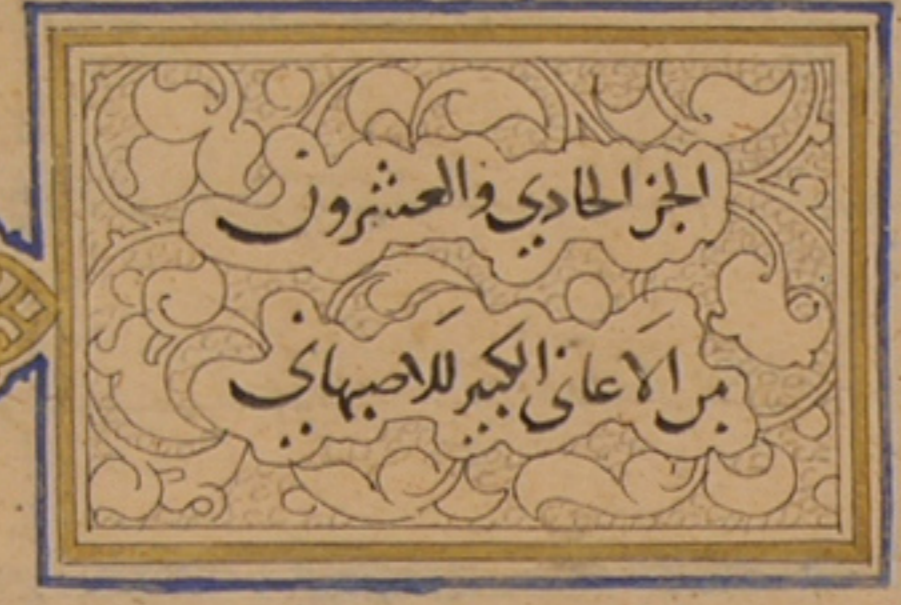 الجز الحادي والعشرون
من الاغاني الكبير للاصبهاني